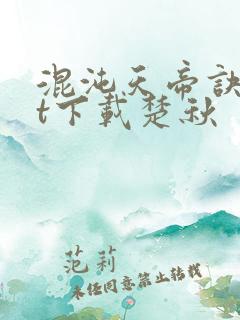 混沌天帝訣
t下載楚秋
范莉
未经同意禁止转载